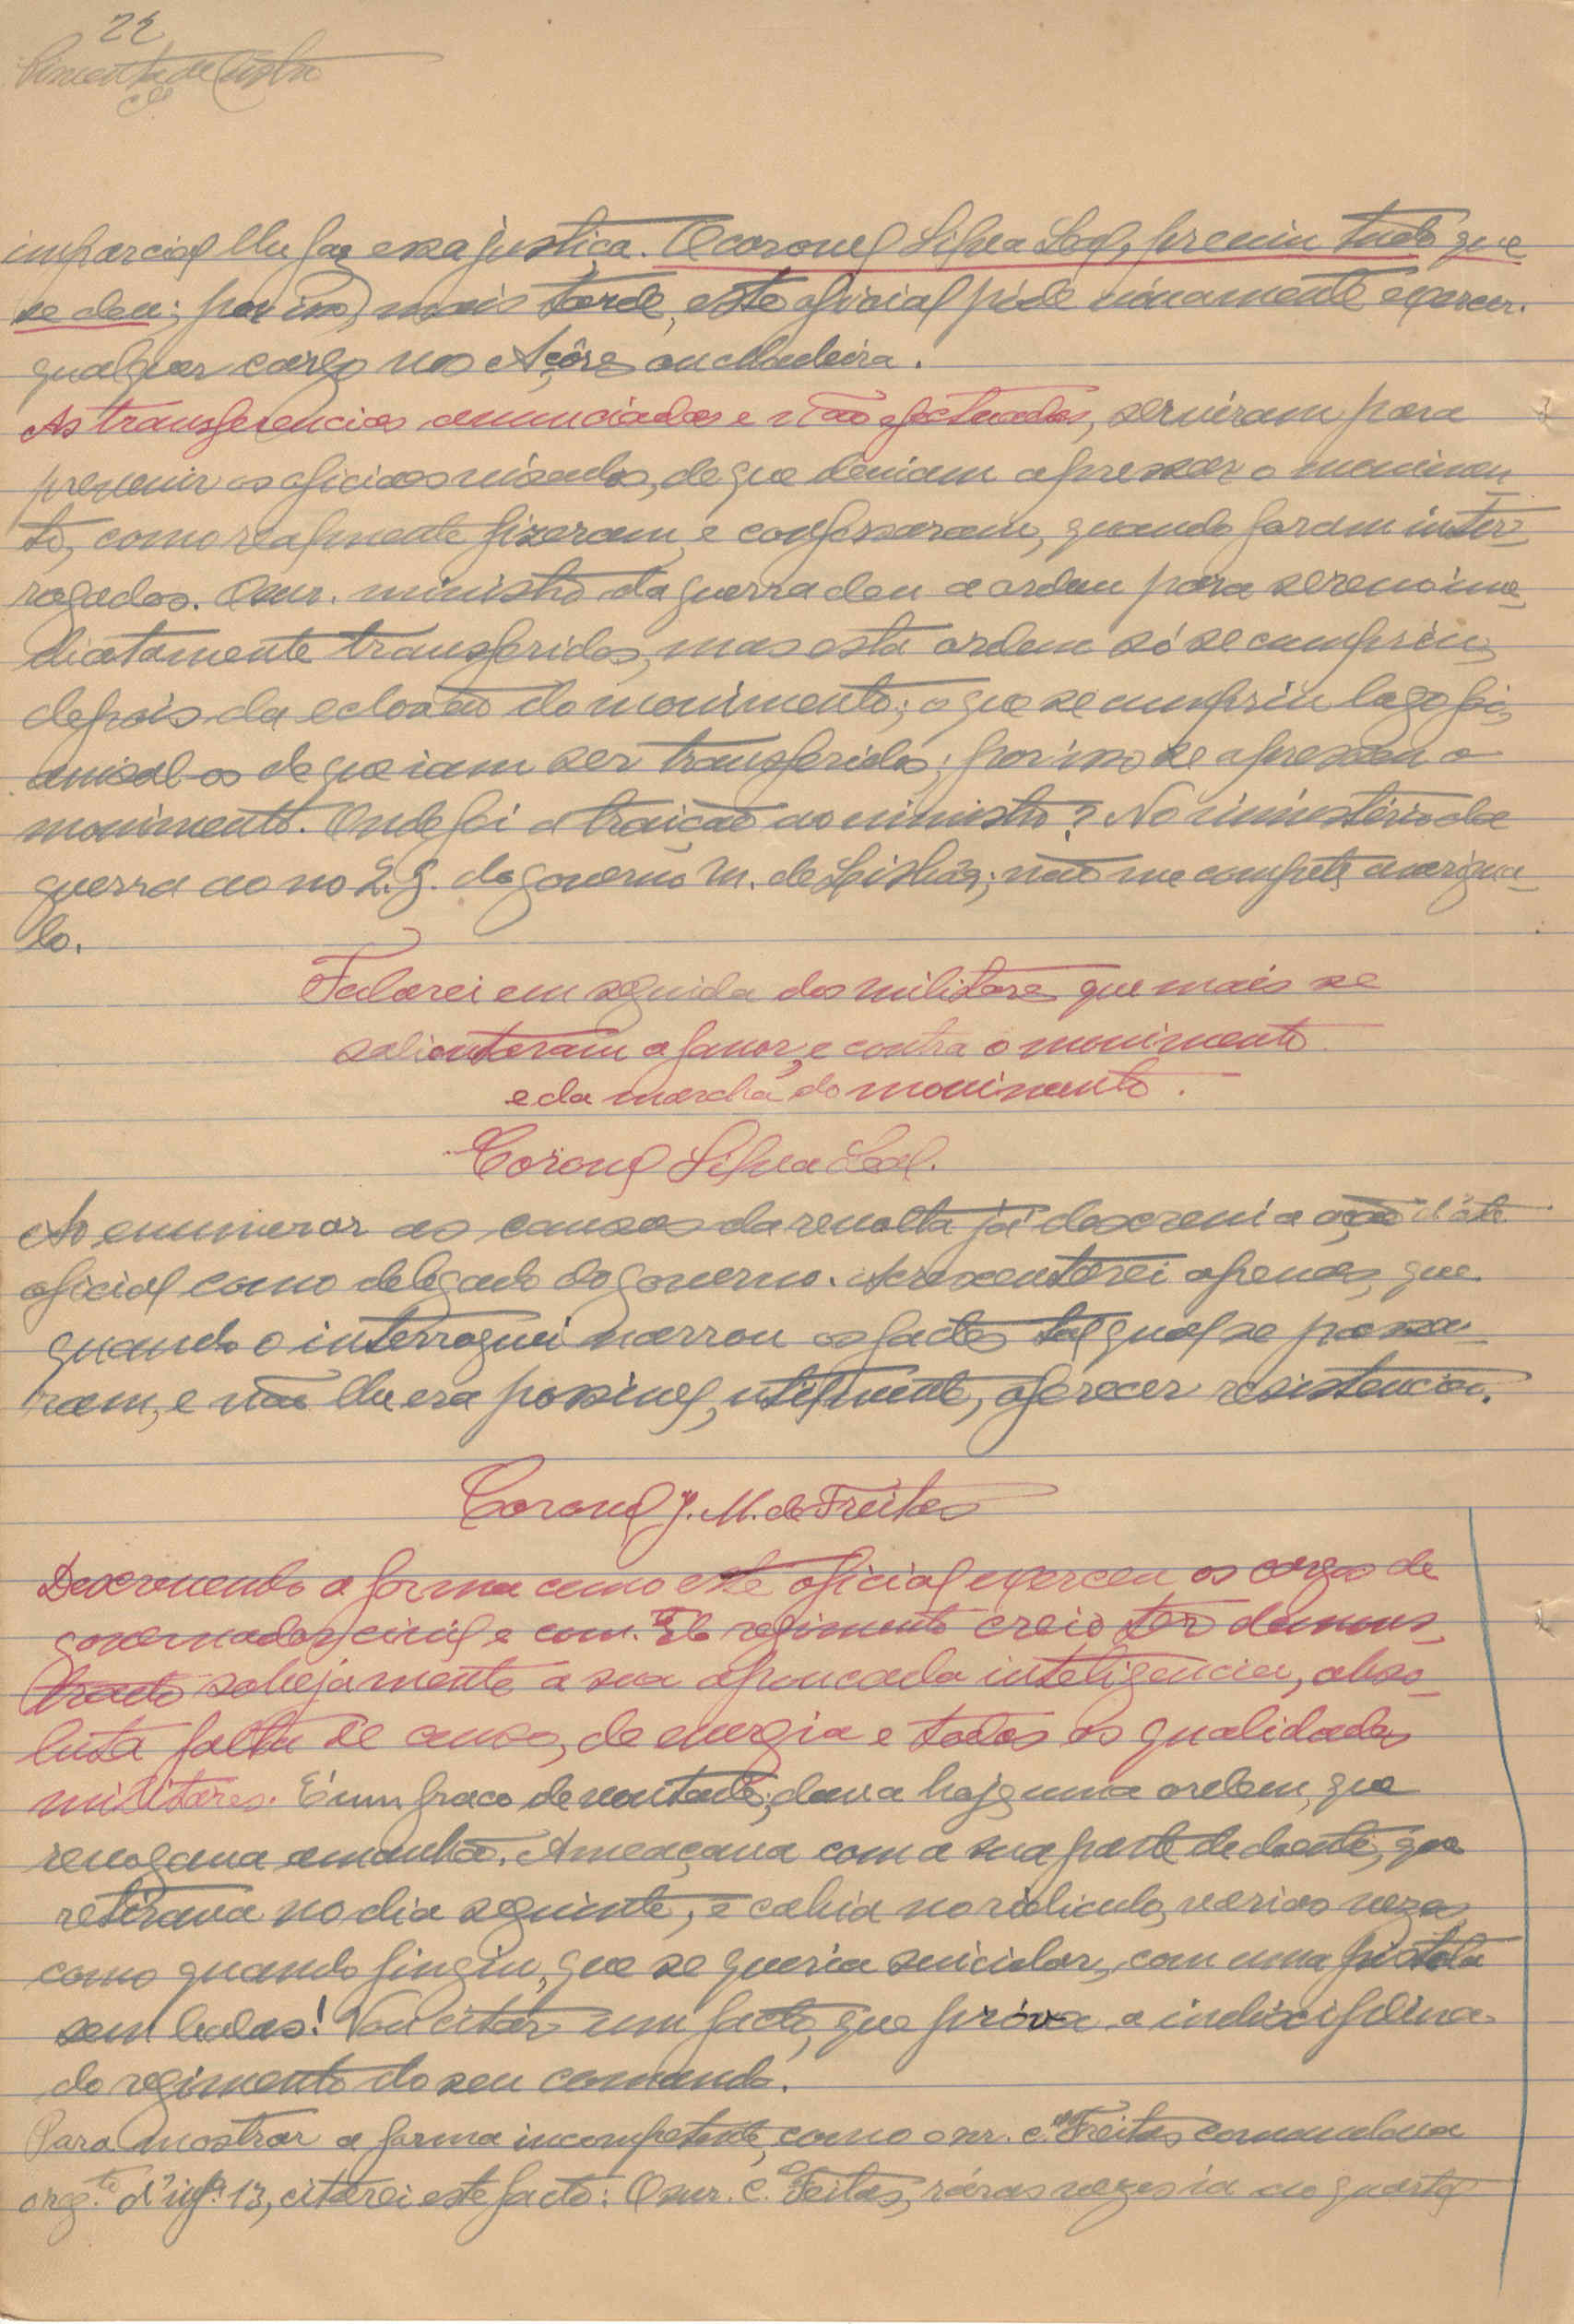 22
Pimenta de Castro
imparcial lhe faz essa justiça. O coronel Silva Leal, previu tudo que
se deu; por isso, mais tarde, este oficial pode novamente exercer
qualquer cargo nos Açôres ou Madeira.
As transferencias anunciadas e não efectuadas, serviram para
prevenir os oficiaes visados, de que deviam apressar o movimen
to, como realmente fizeram, e confessaram, quando foram inter-
rogados. O snr. ministro da guerra deu a ordem para serem ime
diatamente transferidos, mas esta ordem só se cumpriu,
depois da eclosão do movimento; o que se cumpriu logo foi,
avisal-os de que iam ser transferidos; por isso se apressou o
movimento. Onde foi a traição ao ministro? No ministério da
guerra ou no Q. G. do governo M. de Lisbôa; não me compete averigua-
lo.
Falarei em seguida dos militares que mais se
salientaram a favor, e contra o movimento
e da marcha do movimento.
Coronel Silva Leal.
Ao enumerar as causas da revolta já descrevi a ação d'êste
oficial como delegado do governo. Acrescentarei apenas, que
quando o interroguei narrou os factos tal qual se passa-
ram, e não lhe era possivel, utilmente, oferecer resistencia.
Coronel J. M. de Freitas
Descrevendo a forma como este oficial exerceu os cargos de
governador civil e com.te do regimento creio ter demons
trado sobejamente a sua apoucada inteligencia, abso-
luta falta de senso, de energia e todas as qualidades
militares. É um fraco de vontade; dava hoje uma ordem, que
revogava amanhã. Ameaçava com a sua parte de doente, que
retirava no dia seguinte, e cahia no ridiculo, varias vezes,
como quando fingiu, que se queria suicidar, com uma pistola
sem balas! Vou citar um facto, que prova a indisciplina
do regimento do seu comando.
Para mostrar a forma incompetente, como o snr. c.el Freitas comandava
o reg.to d'inf.a 13, citarei este facto: O snr. c.el Freitas, ráras vezes ia ao quartel